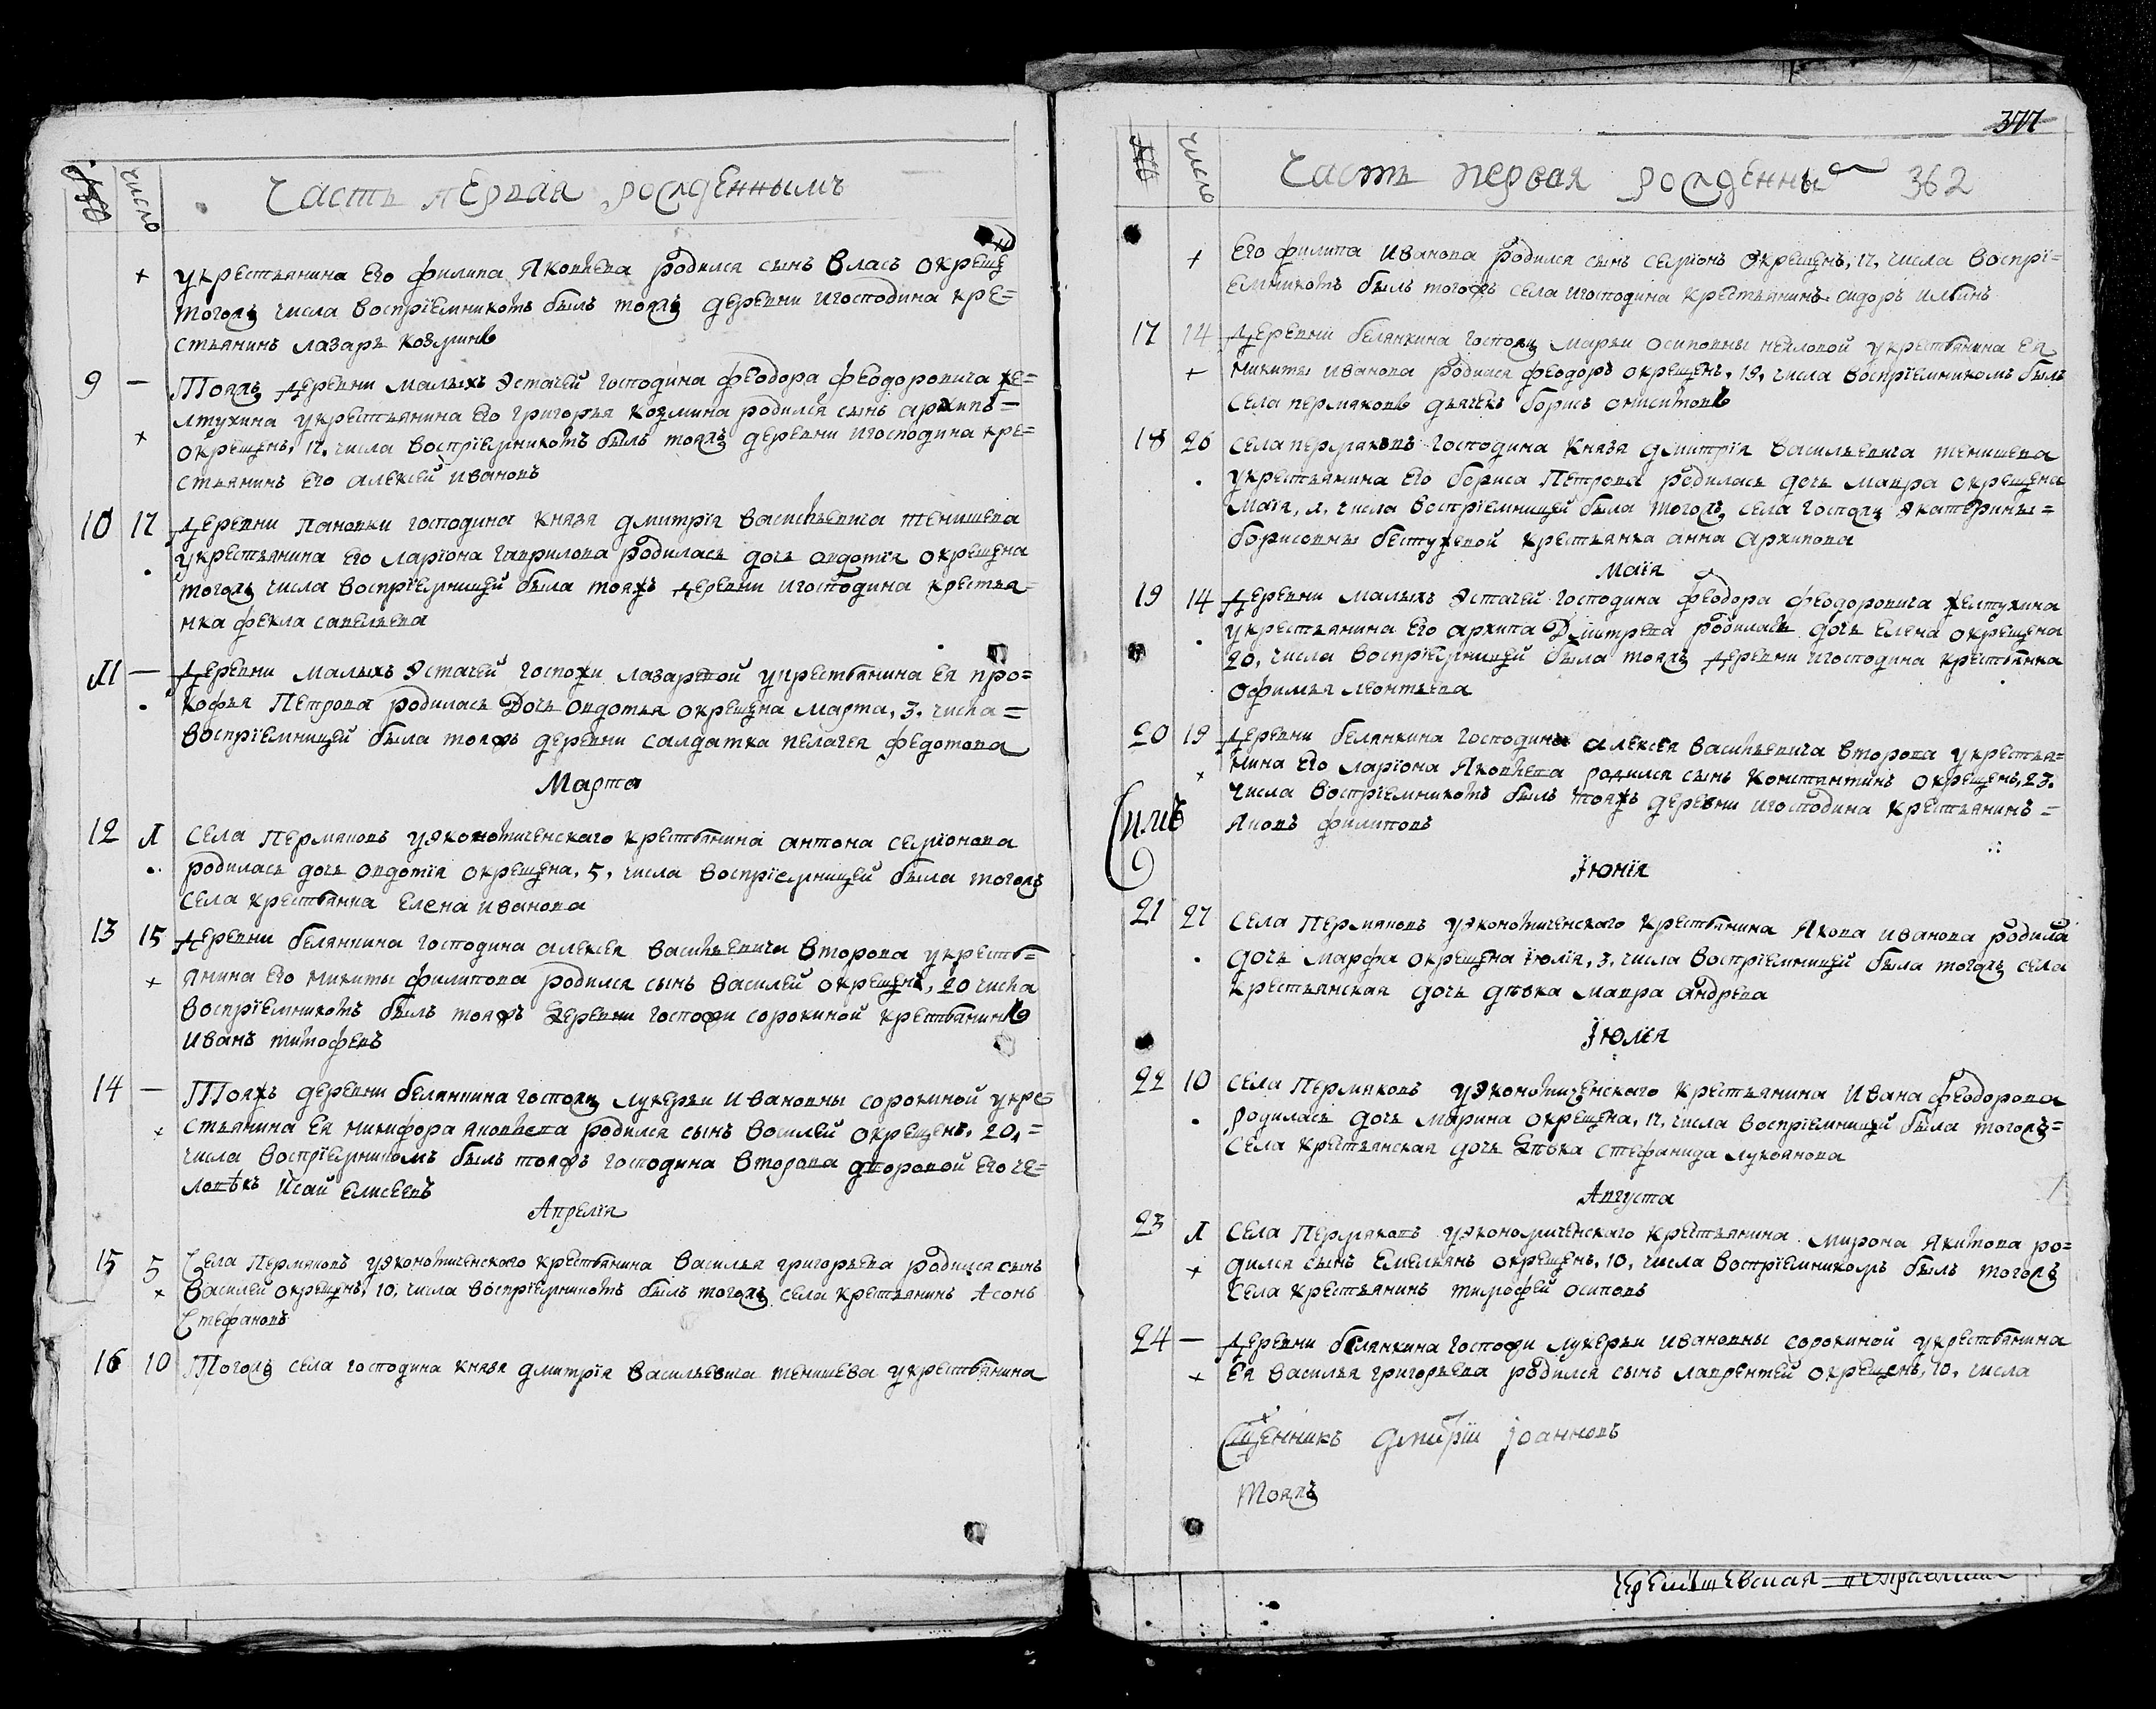 № число Часть первая рожденнымъ
+ укрестьянина его филипа Яковлева родился сынъ Власъ окреще
тогожъ числа воспрїемникомъ былъ тояжъ деревни игосподина кре=
стьянинъ лазарь козминъ
9 — Тояжъ деревни малыхъ Эстачей господина феодора феодоровича же=
лтухина укрестьянина его григорья козмина родился сынъ архипъ=
+ окрещенъ, 17, числа воспрїемникомъ былъ тояжъ деревни игосподина кре=
стьянинъ его алексей ивановъ
10 17 Деревни пановки господина князя дмитрїя васильевича тенишева
укрестьянина его ларїона гаврилова родилась дочь овдотїя окрещена
тогожъ числа воспрїемницей была тояжъ деревни игосподина крестья=
нка фекла савельева
11 — Деревни малыхъ Эстачей госпожи лазаревой укрестьянина ея про=
кофья Петрова родилась Дочь овдотья окрещена марта, 3, числа=
воспрїемницей была тояжъ деревни салдатка пелагея федотова
Марта
12 1 Села Пермяковъ уэкономическаго крестьянина антона семїонова
родилась дочь овдотїя окрещена, 5, числа воспрїемницей была тогожъ
села крестьянка Елена иванова
13 15 Деревни белянкина господина алексея васильевича второва укресть=
+ янина его никиты филипова родился сынъ василей окрещенъ, 20 числа
воспрїемникомъ былъ тояжъ деревни госпожи сорокиной крестьянинъ
иванъ тимофеевъ
14 — Тояжъ деревни белянкина госпожи лукерьи Ивановны сорокиной укре=
+ стьянина ея никифора яковлева родился сынъ василей окрещенъ, 20,=
числа воспрїемникомъ былъ тояжъ господина второва дворовой его че=
ловѣкъ Исаи елисеевъ
Апрелїя
15 5 Села Пермяковъ уэкономическаго крестьянина василья григорьева родился сынъ
+ василей окрещенъ, 10, числа воспрїемникомъ былъ тогожъ села крестьянинъ Асонъ
Стефановъ
16 10 Тогожъ села господина князя дмитрїя васильевича тенишева укрестьянина
377
№ число Часть первая рожденны 362
+ его филипа иванова родился сынъ семїонъ окрещенъ, 17, числа воспрї=
емникомъ былъ тогожъ села игосподина крестьянинъ сидоръ ильинъ
17 14 Деревни белянкина госпожи марьи осиповны нейловой укрестьянина ея
+ никиты иванова родился феодоръ окрещенъ, 19, числа воспрїемникомъ былъ
села пермяковъ дьячекъ борисъ
18 26 села пермяковъ господина князя дмитрїя васильевича тенишева
укрестьянина его бориса Петрова родилась дочь мавра окрещена
маїя, 1, числа воспрїемницей была тогожъ села госпожи экатерины=
борисовны бестужевой крестьянка анна архипова
Маїя
19 14 Деревни малыхъ Эстачей господина феодора феодоровича желтухина
укрестьянина его архипа Дмитрева родилась дочь елена окрещена
20, числа воспрїемницей была тояжъ деревни игосподина крестьянка
офимья леонтьева
20 19 Деревни белянкина господина алексея васильевича второва укрестья=
+ нина его ларїона Яковлева родился сынъ константинъ окрещенъ, 23.
числа воспрїемникомъ былъ тояжъ деревни игосподина крестьянинъ=
яковъ филиповъ
Їюнїя
21 27 Села Пермяковъ уэкономическаго крестьянина Якова иванова родила
дочь марфа окрещена їюлїя, 3, числа воспрїемницей была тогожъ села
крестьянская дочь дѣвка мавра андреева
Їюлїя
22 10 Села Пермяковъ уэкономическаго крестьянина ивана феодорова
родилась дочь марина окрещена, 17, числа воспрїемницей была тогожъ=
села крестьянская дочь дѣвка стефанида лукоянова
Августа
23 1 Села Пермяковъ уэкономическаго крестьянина мирона Якимова ро=
+ дился сынъ Емельянъ окрещенъ, 10, числа воспрїемникомъ былъ тогожъ
села крестьянинъ тимофей осиповъ
24 — Деревни белянкина госпожи лукерьи ивановны сорокиной укрестьянина
+ ея василья григорьева родился сынъ лаврентей окрещенъ, 10, числа
Сщенникъ дмитрїи їоанновъ
тояжъ